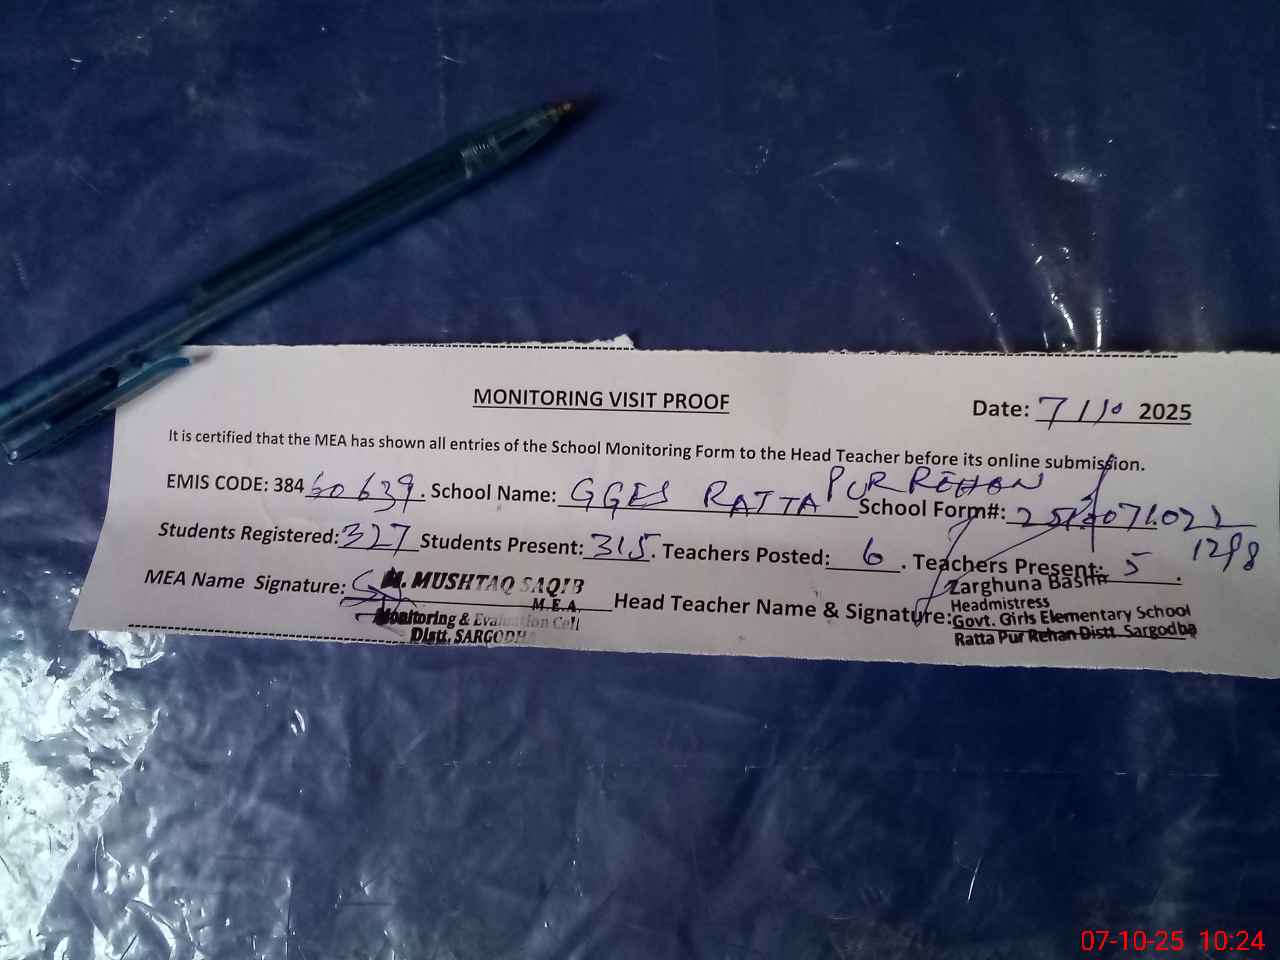 MONITORING VISIT PROOF
Date: 7/10 2025
It is certified that the MEA has shown all entries of the School Monitoring Form to the Head Teacher before its online submission.
EMIS CODE: 38460639. School Name: GGES RATTA PUR REHAN School Form#:
Students Registered: 327 Students Present: 315. Teachers Posted: 6. Teachers Present: 5.
MEA Name Signature: M. MUSHTAQ SAQIB
M.E.A.
Monitoring & Evaluation Cell
Distt. SARGODHA
Head Teacher Name & Signature: Zarghuna Bashir
Headmistress
Govt. Girls Elementary School
Ratta Pur Rehan Distt. Sargodha
07-10-25 10:24